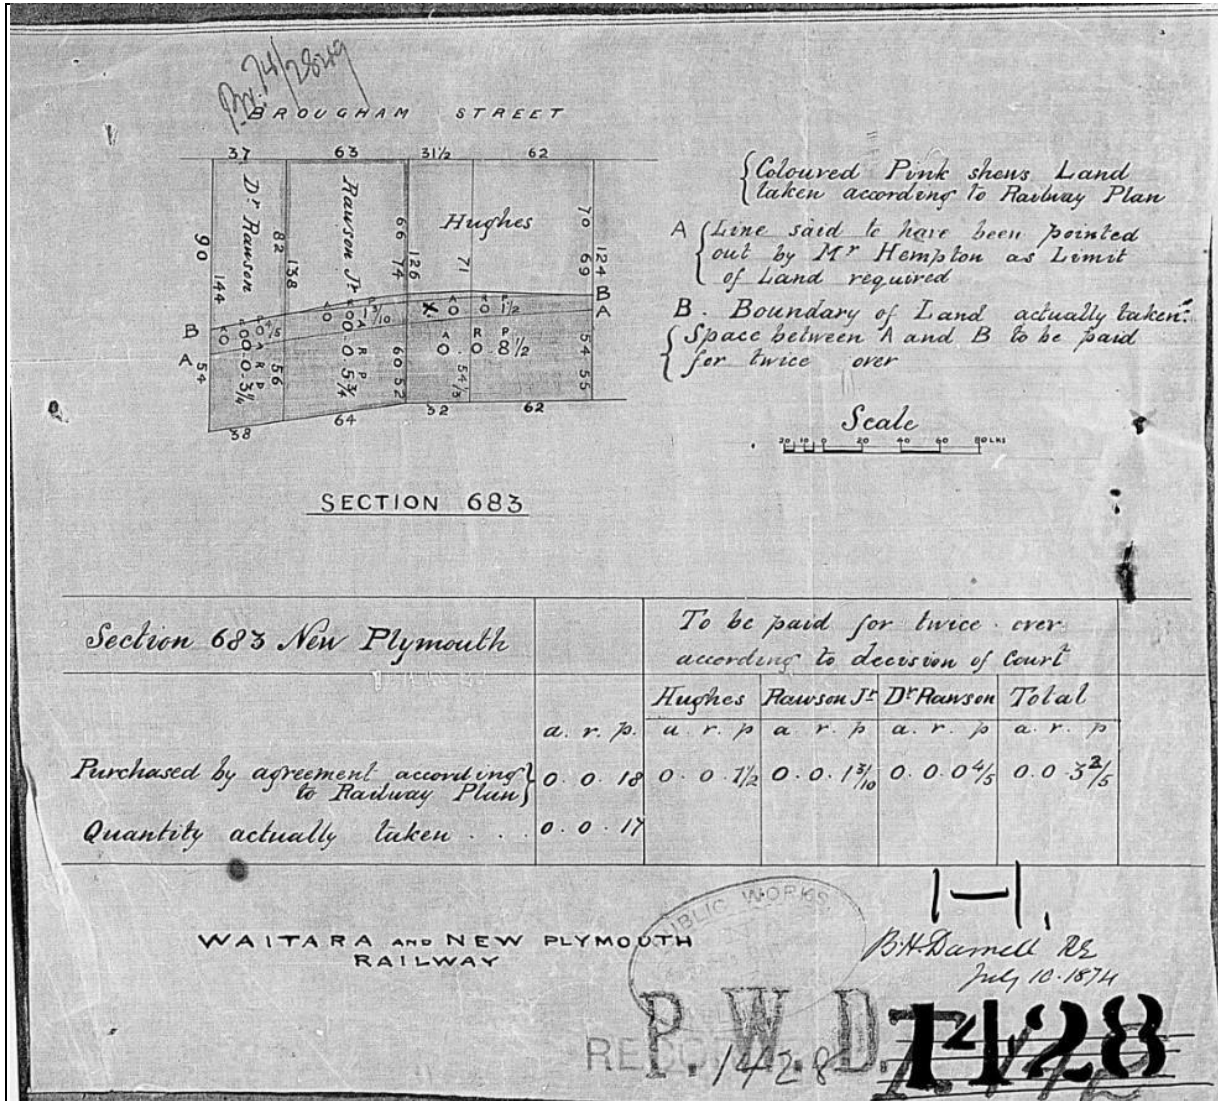 P.W. 74/2849
BROUGHAM STREET
37 63 31½ 62
Dr Rawson
Rawson Jr
Hughes
90 144 82 138 66 74 126 71 70 69 124
B
B
A
A
0 0 0 4/5
0 0 1 3/10
A R P
0 0 1½
A R P
0. 0. 8½
A R P
0. 0. 5¾
A R P
0. 0. 3¼
54 56 60 52 54⅓ 54 55
38 64 32 62
Coloured Pink shews Land
taken according to Railway Plan
A Line said to have been pointed
out by Mr Hempton as Limit
of Land required
B. Boundary of Land actually taken.
Space between A and B to be paid
for twice over
Scale
20 10 0 20 40 60 80 LKS
SECTION 683
Section 683 New Plymouth
To be paid for twice over
according to decision of Court
Hughes Rawson Jr Dr Rawson Total
a. r. p. a. r. p a. r. p a. r. p a. r. p
Purchased by agreement according
to Railway Plan
0. 0. 18 0. 0. 1½ 0. 0. 1 3/10 0. 0. 0 4/5 0. 0. 3 3/5
Quantity actually taken . . . 0. 0. 17
WAITARA AND NEW PLYMOUTH
RAILWAY
PUBLIC WORKS
H.
B.H. Darnell RE
July 10. 1874
P. W. D. 1428
RECORD
1428